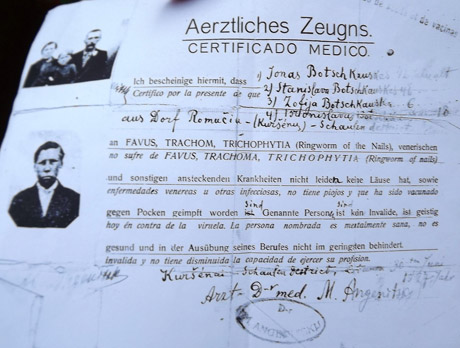 de vacunas
Aerztliches Zeugns.
CERTIFICADO MEDICO.
Ich bescheinige hiermit, dass 1) Jonas Botschkauskas
Certifico por la presente de que 2) Stanislava Botschkauskas
3) Zofija Botschkauskas 6
4) 18
aus Dorf Romučiu - (Kuršėnus) - Schaulen
an FAVUS, TRACHOM, TRICHOPHYTIA (Ringworm of the Nails), venerischen
no sufre de FAVUS, TRACHOMA, TRICHOPHYTIA (Ringworm of nails)
und sonstigen ansteckenden Krankheiten nicht leiden keine Läuse hat, sowie
enfermedades venereas u otras infecciosas, no tiene piojos y que ha sido vacunado
gegen Pocken geimpft worden sind Genannte Person sind ist kin Invalide, ist geistig
hoy én contra de la viruela. La persona nombrada es mentalmente sana, no es
gesund und in der Ausübung seines Berufes nicht im geringsten behindert.
invalida y no tiene disminuida la capacidad de ejercer su profision.
Kuršėnai - Schaulen district
Arzt - Dr med. M. Angenitzki
Dr.